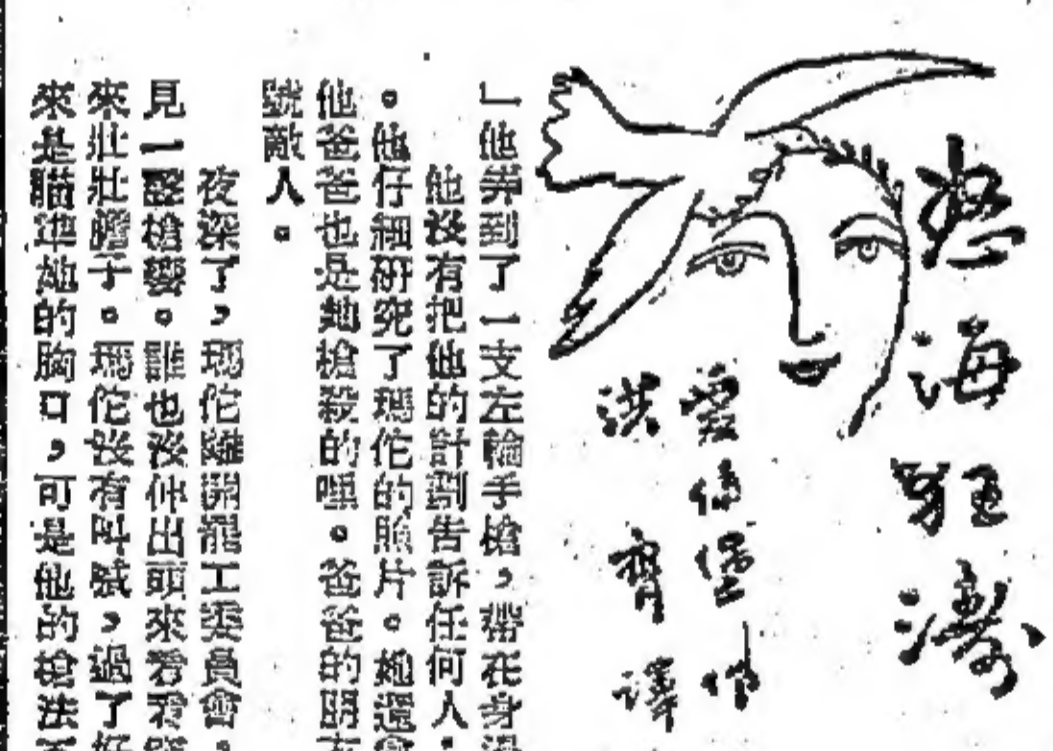 怒海狂濤
愛倫堡作
洪齊譯
」他弄到了一支左輪手槍,帶在身
他沒有把他的計劃告訴任何人
。他仔細研究了瑪佗的照片。她還
他爸爸也是她槍殺的哩。爸爸的朋
號敵人。
夜深了,瑪佗離開罷工委員會。
見一聲槍響。誰也沒伸出頭來看看
來壯壯膽子。瑪佗沒有叫喊,過了好
來是瞄準她的胸口,可是他的槍法